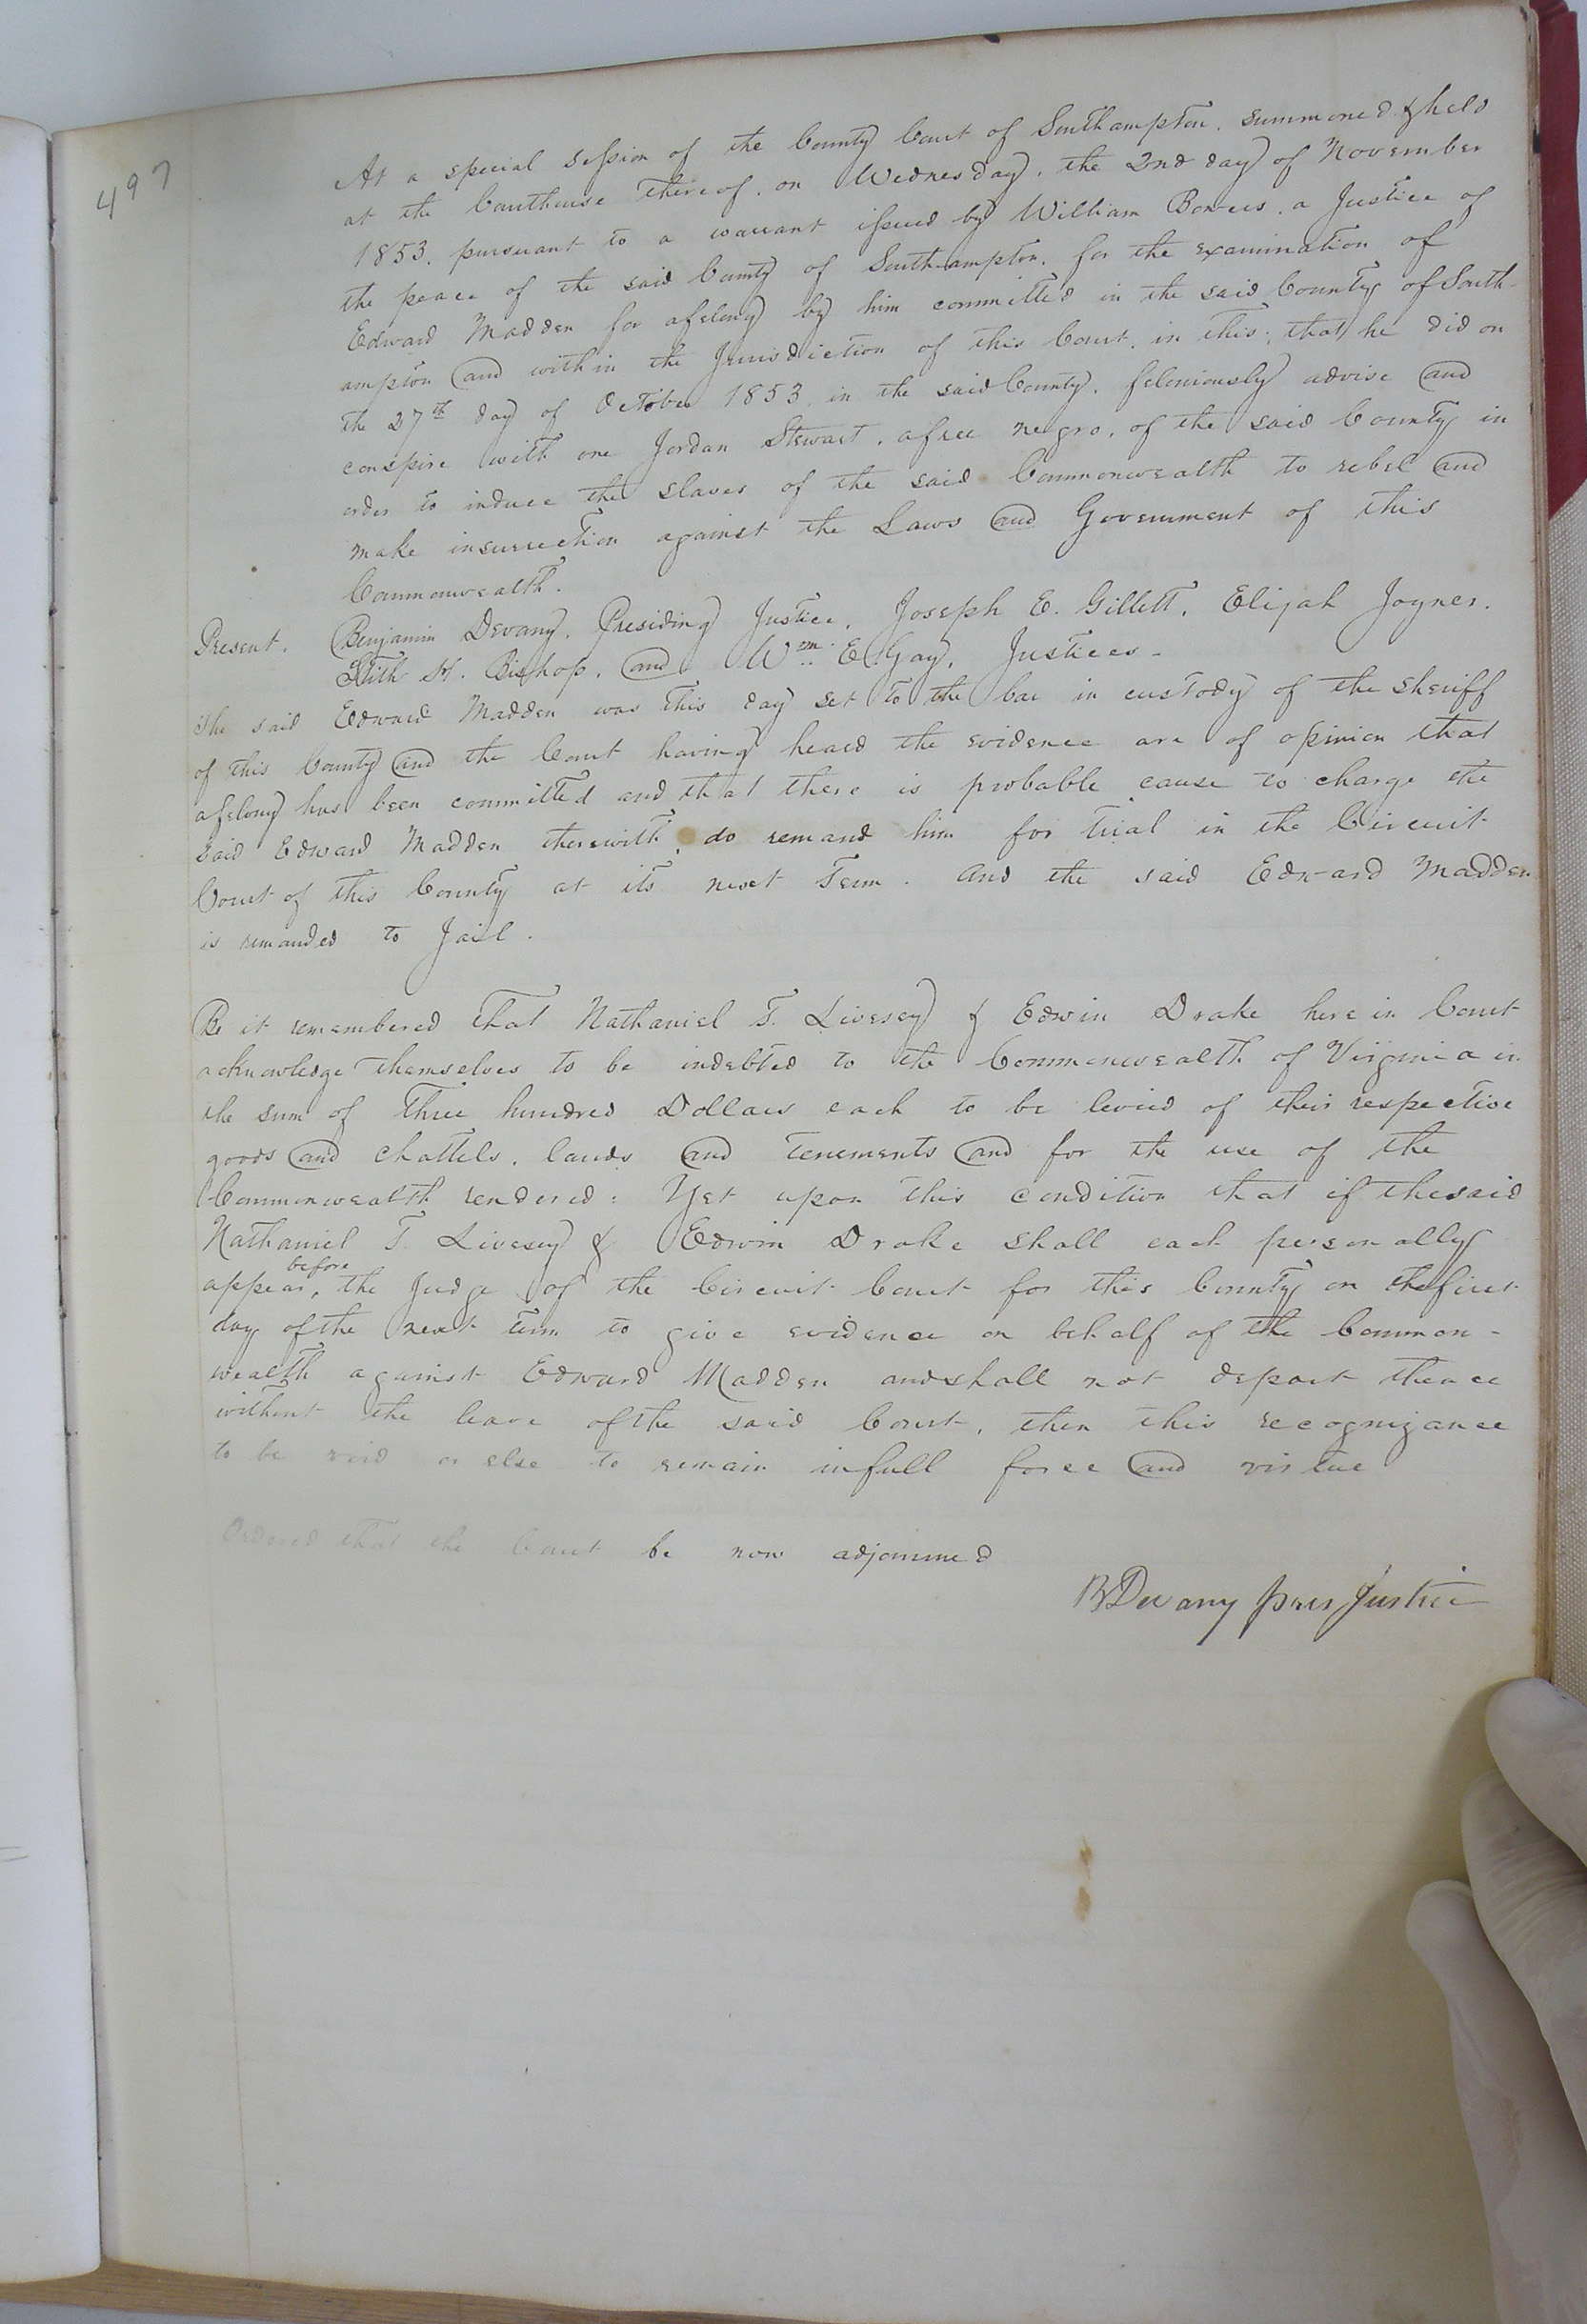 497
At a special session of the County Court of Southampton, summoned & held
at the Courthouse thereof, on Wednesday, the 2nd day of November
1853, pursuant to a warrant issued by William Bowers, a Justice of
the peace of the said County of Southampton, for the examination of
Edward Madden for a felony by him committed in the said County of South-
ampton and within the Jurisdiction of this Court, in this; that he did on
the 27th day of October 1853, in the said County, feloniously advise and
conspire with one Jordan Stewart, a free negro, of the said County in
order to induce the slaves of the said Commonwealth to rebel and
make insurrection against the Laws and Government of this
Commonwealth.
Present, Benjamin Devany, Presiding Justice, Joseph E. Gillett, Elijah Joyner,
H. Bishop, and Wm. E. Gay, Justices -
The said Edward Madden was this day set to the bar in custody of the sheriff
of this County and the Court having heard the evidence are of opinion that
a felony has been committed and that there is probable cause to charge the
said Edward Madden therewith, do remand him for trial in the Circuit
Court of this County at its next Term. And the said Edward Madden
is remanded to Jail.
Be it remembered that Nathaniel T. Livesey & Edwin Drake here in Court
acknowledge themselves to be indebted to the Commonwealth of Virginia in
the sum of Three hundred Dollars each to be levied of their respective
goods and chattels, lands and tenements and for the use of the
Commonwealth rendered: Yet upon this condition that if the said
Nathaniel T. Livesey & Edwin Drake shall each personally
appear, before the Judge of the Circuit Court for this County on the first
day of the next term to give evidence on behalf of the Common-
wealth against Edward Madden and shall not depart thence
without the leave of the said Court, then this recognizance
to be void or else to remain in full force and virtue
Ordered that the Court be now adjourned
B Devany pres Justice